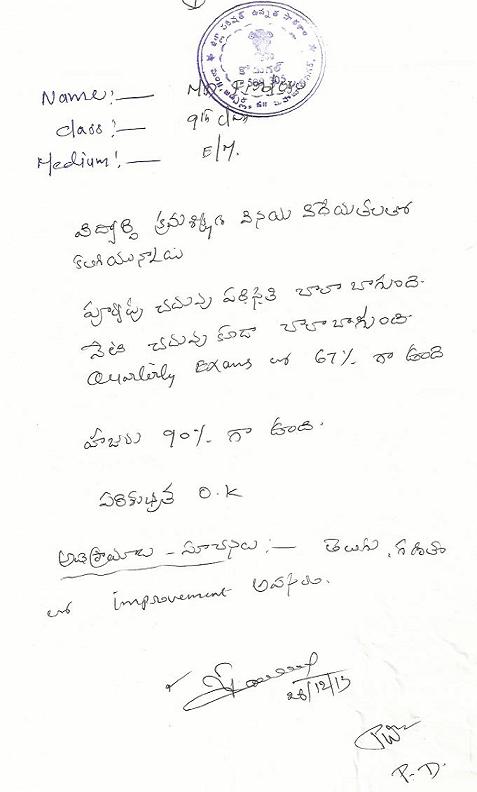 Name:—
9th class
Class:—
Medium:—
E/M.
విద్యార్థి క్రమశిక్షణ వినయ విధేయతలతో
కలిగియున్నాడు
పూర్వపు చదువు పరిస్థితి చాలా బాగుంది.
నేటి చదువు కూడా చాలా బాగుంది.
Quarterly Exams లో 67% గా ఉంది
హాజరు 90% గా ఉంది.
పరిశుభ్రత O.K
అభిప్రాయాలు - సూచనలు :— తెలుగు, గణితం
లో improvement అవసరం.
28/12/13
P.D.